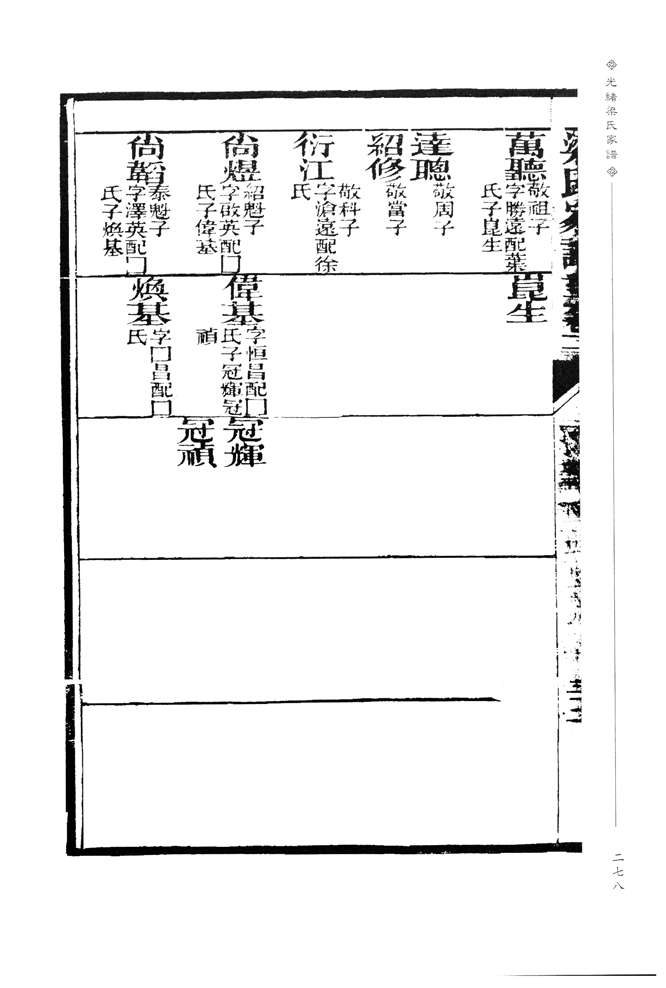 光緒梁氏家譜
梁氏家譜
萬聽
敬祖子
字勝遠配葉
氏子崑生
達聰
敬周子
紹修
敬當子
衍江
敬科子
字滄遠配徐
氏
尚煜
紹魁子
字啟英配口
氏子偉基
尚韜
泰魁子
字澤英配口
氏子煥基
崑生
偉基
字恒昌配口
氏子冠輝冠
禎
煥基
字口昌配口
氏
冠輝
冠禎
二七八